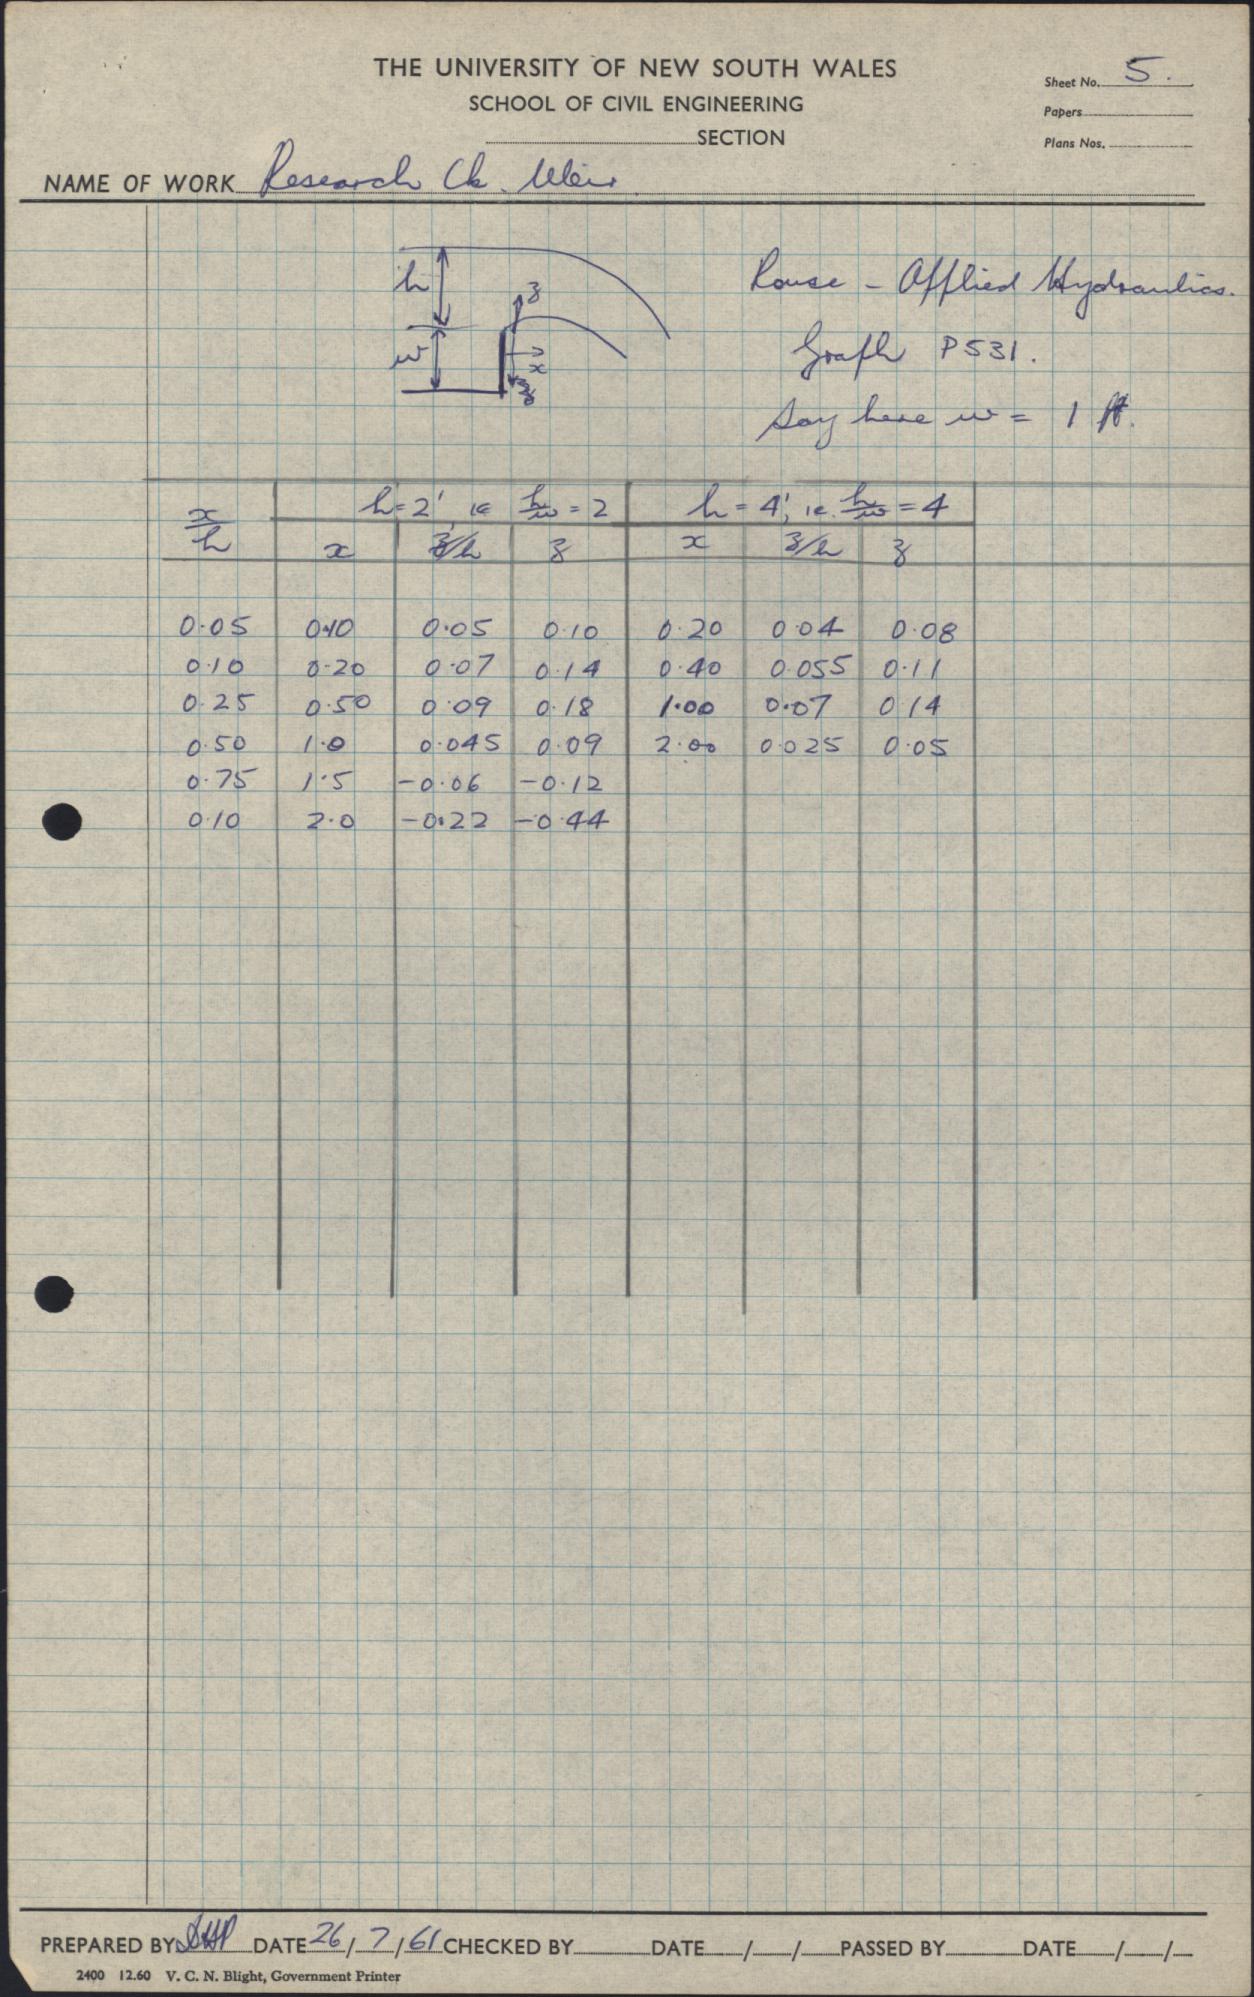 THE UNIVERSITY OF NEW SOUTH WALES
SCHOOL OF CIVIL ENGINEERING
SECTION
Sheet No. 5.
Papers
Plans Nos.
NAME OF WORK Research Ch. Weir
h
w
z
x
z
Rouse - Applied Hydraulics.
Graph P531.
Say here w = 1 ft.
x/h h=2', ie h/w = 2 h = 4', ie. h/w = 4
x z/h z x z/h z
0.05 0.10 0.05 0.10 0.20 0.04 0.08
0.10 0.20 0.07 0.14 0.40 0.055 0.11
0.25 0.50 0.09 0.18 1.00 0.07 0.14
0.50 1.0 0.045 0.09 2.00 0.025 0.05
0.75 1.5 -0.06 -0.12
0.10 2.0 -0.22 -0.44
PREPARED BY DATE 26/7/61 CHECKED BY DATE / / PASSED BY DATE / /
2400 12.60 V. C. N. Blight, Government Printer